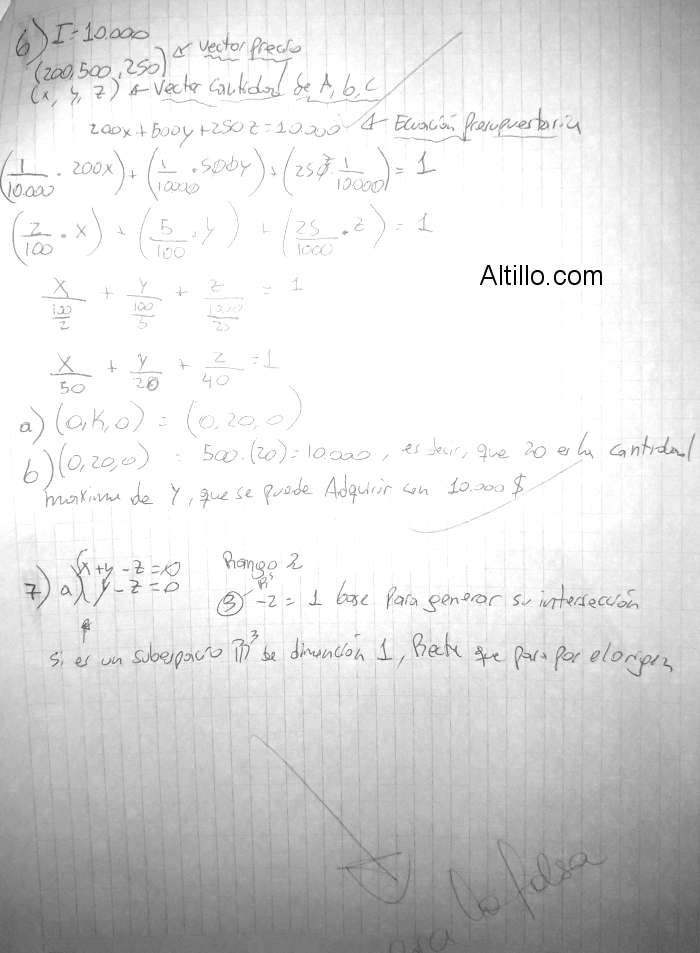 6) I = 10.000
(200, 500, 250) ↙ vector Precio
(x, y, z) ← Vector Cantidad de A, b, C
200x + 500y + 250z = 10.000 ← Ecuación Presupuestaria
(1/10.000 . 200x) + (1/10.000 . 500y) + (250 . 1/10000) = 1
(2/100 . x) + (5/100 . y) + (25/1000 . z) = 1
Altillo.com
x/(100/2) + y/(100/5) + z/(1000/25) = 1
x/50 + y/20 + z/40 = 1
a) (0, K, 0) = (0, 20, 0)
b) (0, 20, 0) = 500.(20) = 10.000, es decir, que 20 es la cantidad
maxima de Y, que se puede Adquirir con 10.000 $
7) a) { x + y - z = 0 Rango 2
y - z = 0 3 - 2 = 1 base para generar su intersección
Si es un subespacio R³ de dimensión 1, Recta que pasa por el origen
la falsa